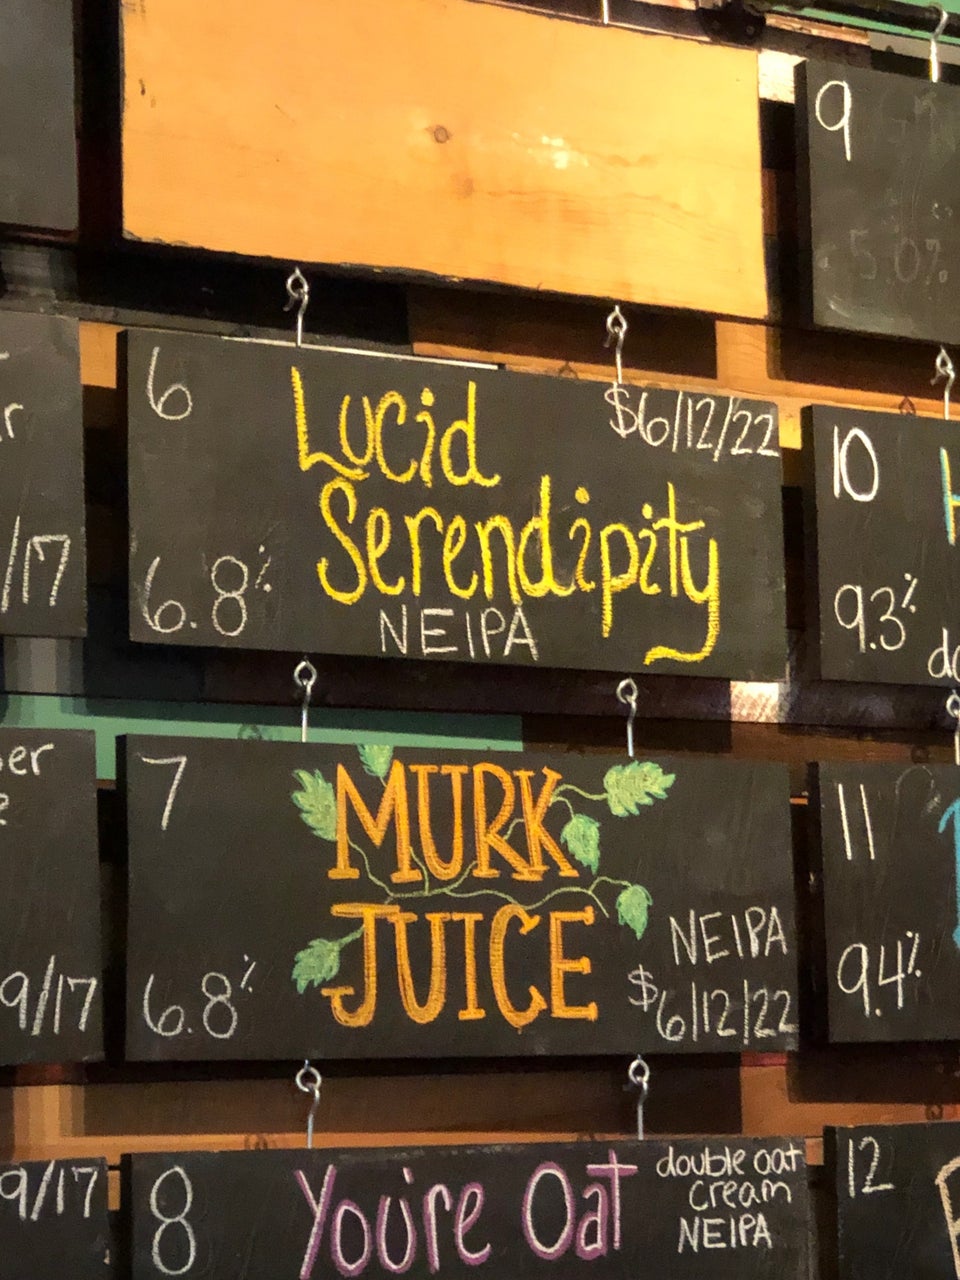 er
9/17
9/17
/17
6
Lucid
$6/12/22
Serendipity
6.8%
NEIPA
7
MURK
JUICE
NEIPA
6.8%
$6/12/22
8
You're Oat
double oat
cream
NEIPA
9
5.0%
10
9.3%
11
9.4%
12